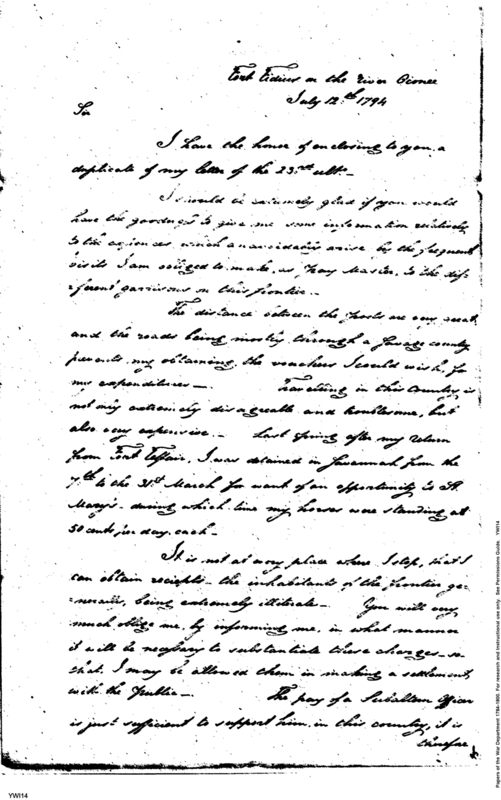 Fort Fidius on the river Oconee
July 12th. 1794
Sir
I have the honor of enclosing to you, a
duplicate of my letter of the 23rd. ulto.
I should be extremely glad if you would
have the goodness to give me some information relatively
to the expences, which unavoidably arise by the frequent
visits I am obliged to make, as Pay Master, to the dif-
ferent garrisons on this frontier.
The distance between the posts are very great,
and the roads being mostly through a savage country
prevents my obtaining the vouchers I could wish, for
my expenditures — Travelling in this Country, is
not only extremely disagreable and troublesome, but
also very expensive — Last Spring after my return
from Fort , I was detained in Savannah from the
7th. to the 31st March for want of an opportunity to St.
Mary's — during which time my horses were standing at
50 cents per day, each —
It is not at every place where I stop, that I
can obtain reciepts — the inhabitants of the frontier ge-
neraly, being extremely illiterate — You will very
much oblige me, by informing me, in what manner
it will be necessary to substantiate these charges — so
that I may be allowed them in making a settlement,
with the public — The pay of a Subaltern Officer
is just sufficient to support him, in this country, it is
therefore
Papers of the War Department 1784-1800. For research and instructional use only. See Permissions Guide. YWI14
YWI14